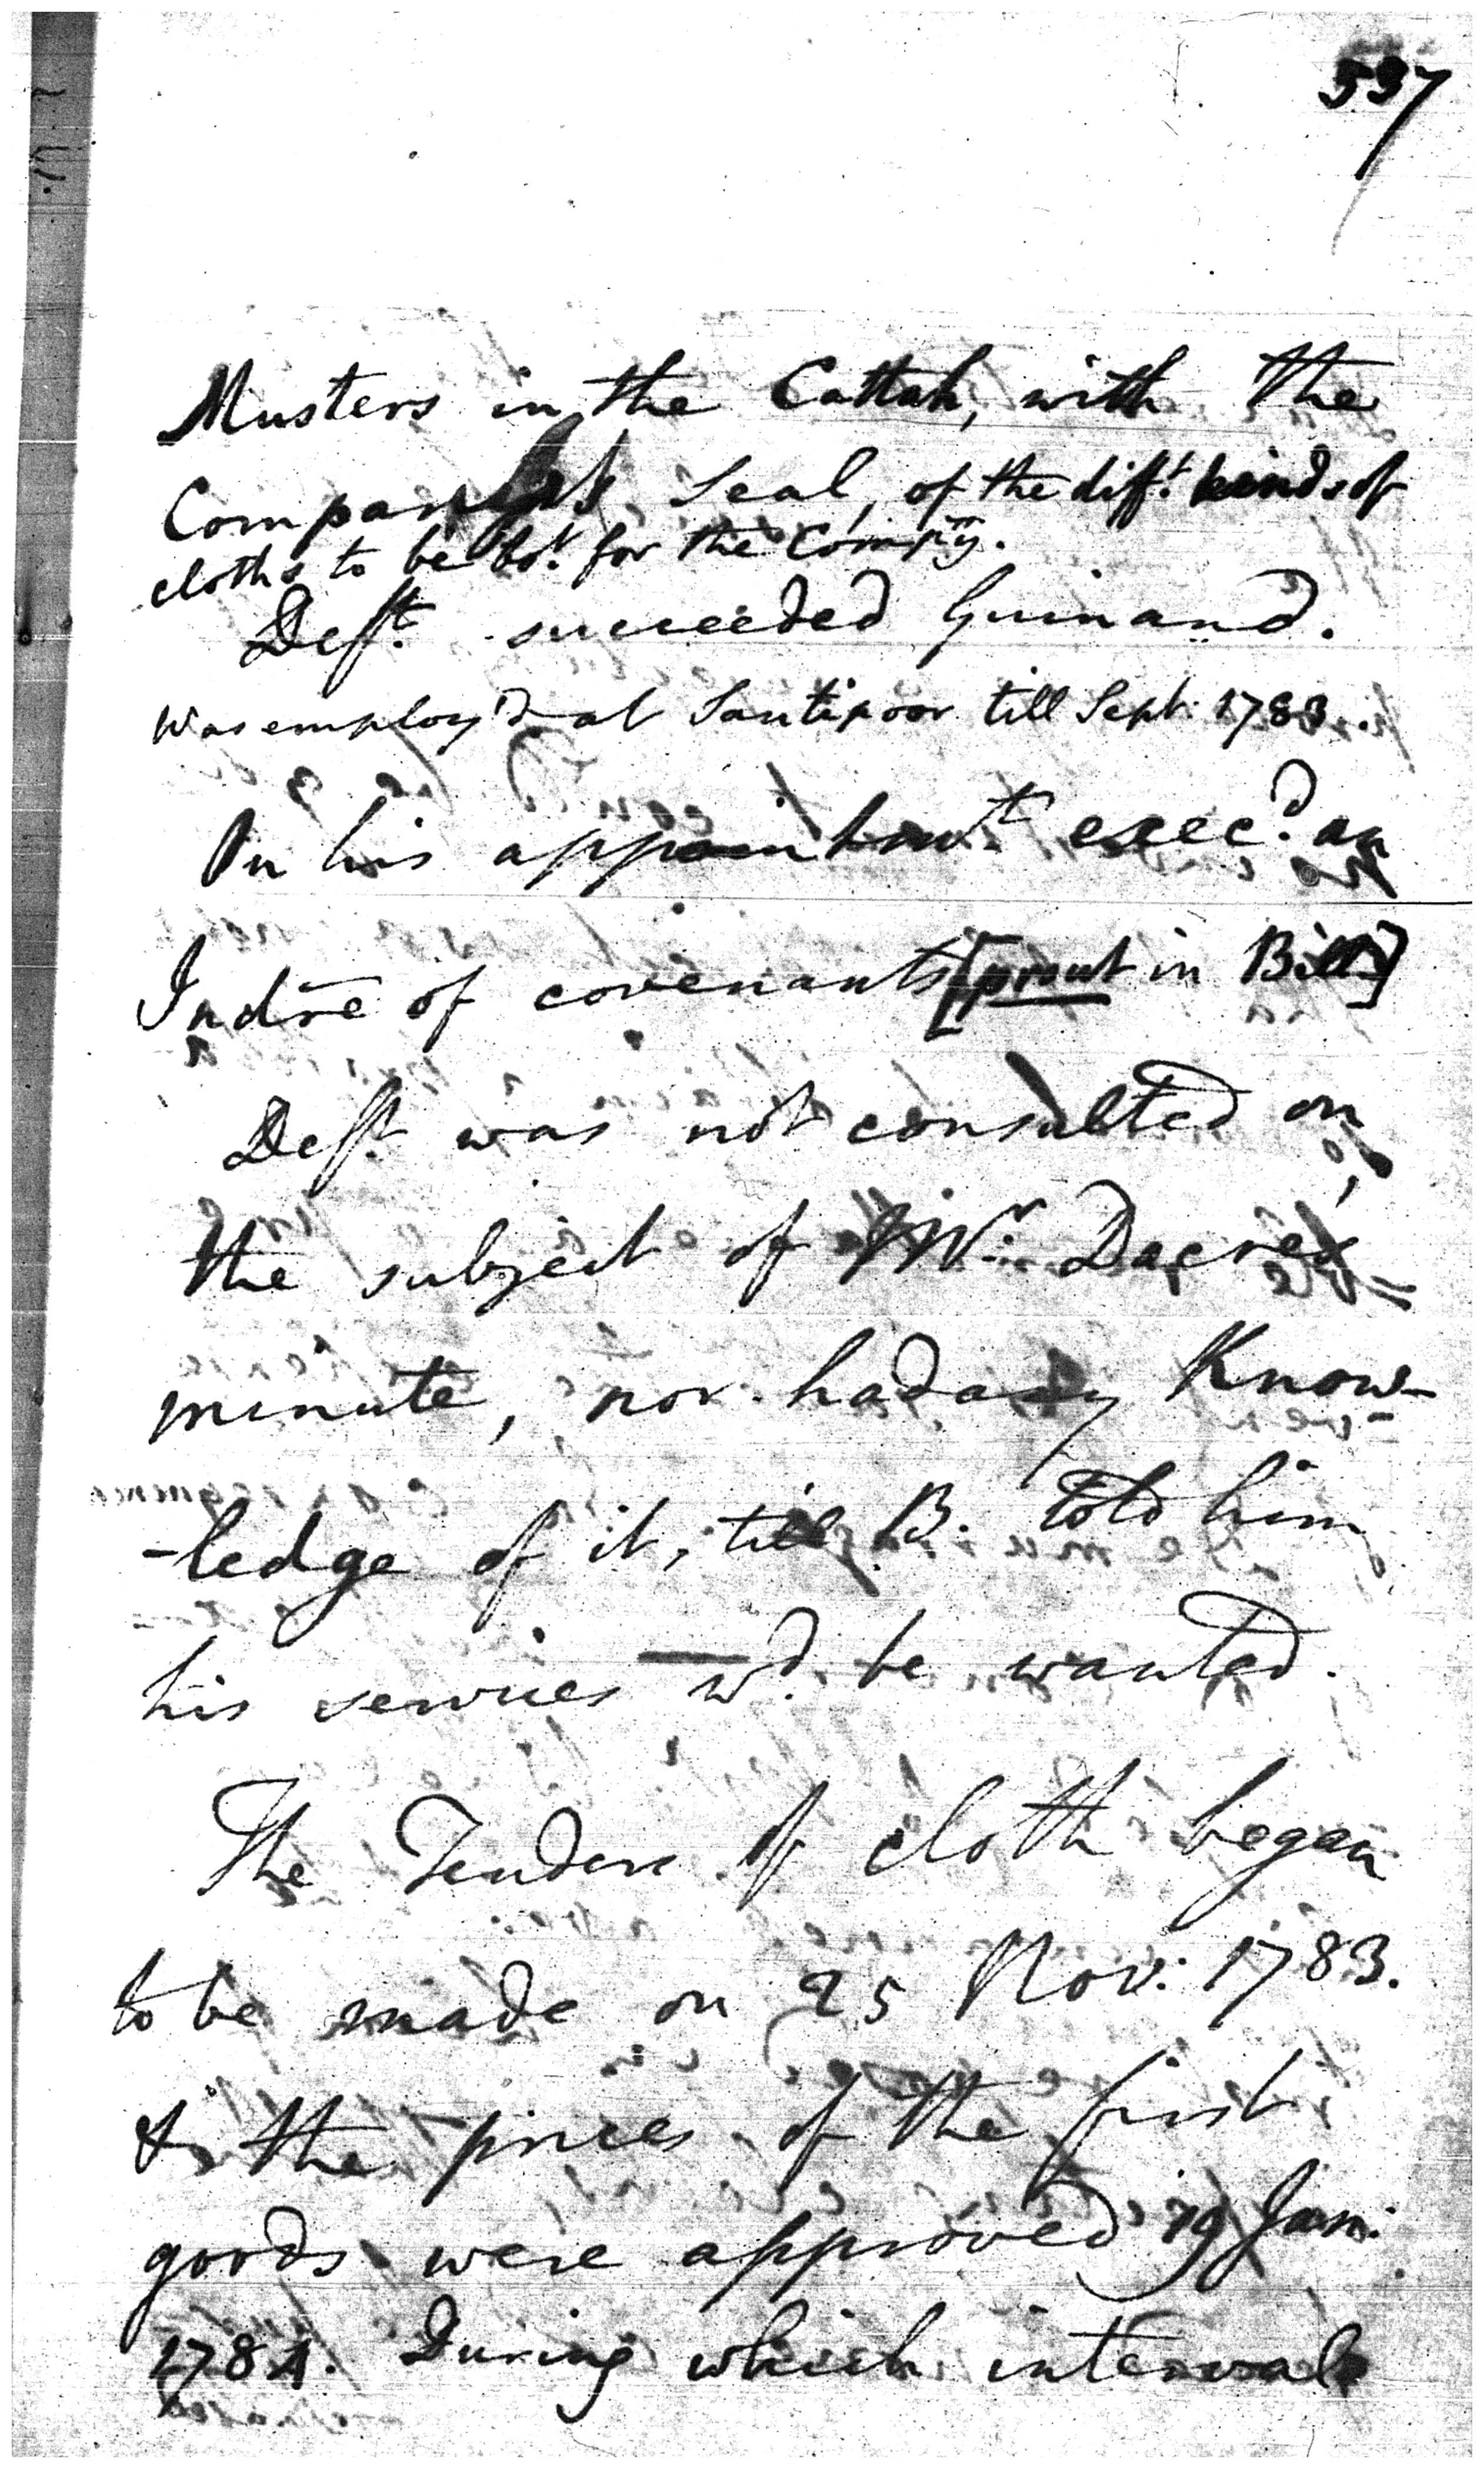 597
Musters in the Cattah, with the
Company's Seal, of the difft. kinds of
cloths to be bot. for the Compny.
Deft. succeeded Guinand.
was employ'd at Santipoor till Sept: 1783.
On his appointmt. exec.d an
Indre of covenants [prout in Bill]
Deft. was not consulted on
the subject of Mr. Dacres'
minute, nor had any Know-
-ledge of it, till B. told him
his services wd. be wanted.
The Tenders of cloth began
to be made on 25 Nov: 1783.
& the prices of the first
goods were approved 19 Jan:
1784. During which interval